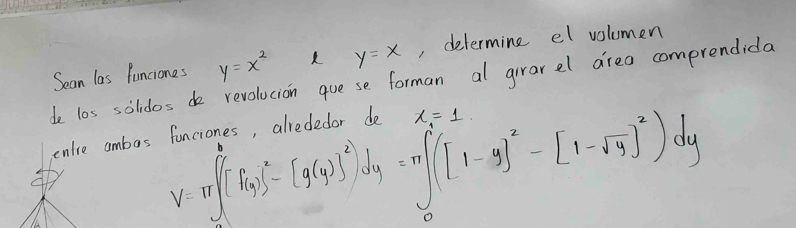 Sean las funciones y = x² e y = x , determine el volumen
de los sólidos de revolución que se forman al girar el área comprendida
entre ambas funciones, alrededor de x = 1.
V = π ∫ₐᵇ ([f(y)]² - [g(y)]²) dy = π ∫₀¹ ([1 - y]² - [1 - √y]²) dy